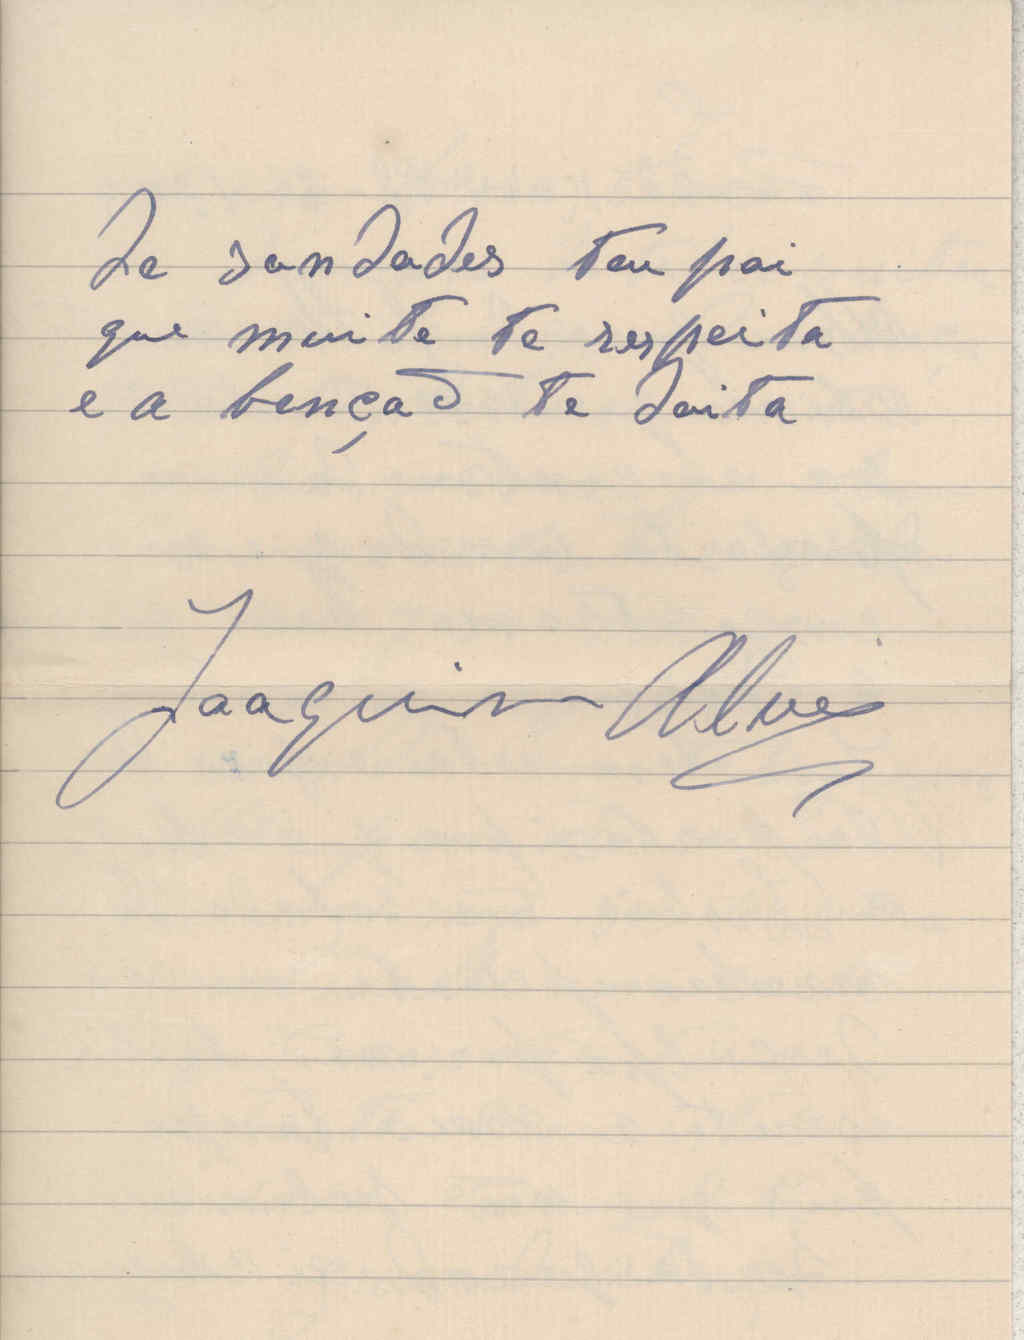 de saudades teu pai
que muito te respeita
e a benção te deita
Joaquim Alves